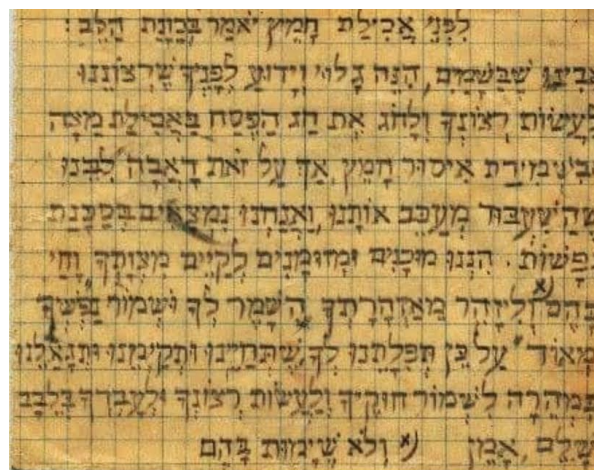 לִפְנֵי אֲכִילַת חָמֵץ יֹאמַר בְּכַוָּנַת הַלֵּב:
אָבִינוּ שֶׁבַּשָּׁמַיִם, הִנֵּה גָלוּי וְיָדוּעַ לְפָנֶיךָ שֶׁרְצוֹנֵנוּ
לַעֲשׂוֹת רְצוֹנְךָ וְלָחוֹג אֶת חַג הַפֶּסַח בַּאֲכִילַת מַצָּה
וּבִשְׁמִירַת אִיסוּר חָמֵץ, אַךְ עַל זֹאת דָאֲבָה לִבֵּנוּ
שֶׁהַשִּׁעְבּוּד מְעַכֵּב אוֹתָנוּ, וַאֲנַחְנוּ נִמְצָאִים בְּסַכָּנַת
נְפָשׁוֹת. הִנְנוּ מוּכָנִים וּמְזוּמָנִים לְקַיֵּים מִצְוָתְךָ וָחַי
בָּהֶם א) וְלִיזָּהֵר מֵאַזְהָרָתְךָ הִשָּׁמֶר לְךָ וּשְׁמוֹר נַפְשְׁךָ
מְאוֹד. עַל כֵּן תְּפִלָּתֵנוּ לְךָ, שֶׁתְּחַיֵּינוּ וּתְקַיְּמֵנוּ וְתִגְאָלֵנוּ
בִּמְהֵרָה לִשְׁמוֹר חוּקֶיךָ וְלַעֲשׂוֹת רְצוֹנְךָ וּלְעָבְדְךָ בְּלֵבָב
שָׁלֵם, אָמֵן א) וְלֹא שֶׁיָּמוּת בָּהֶם